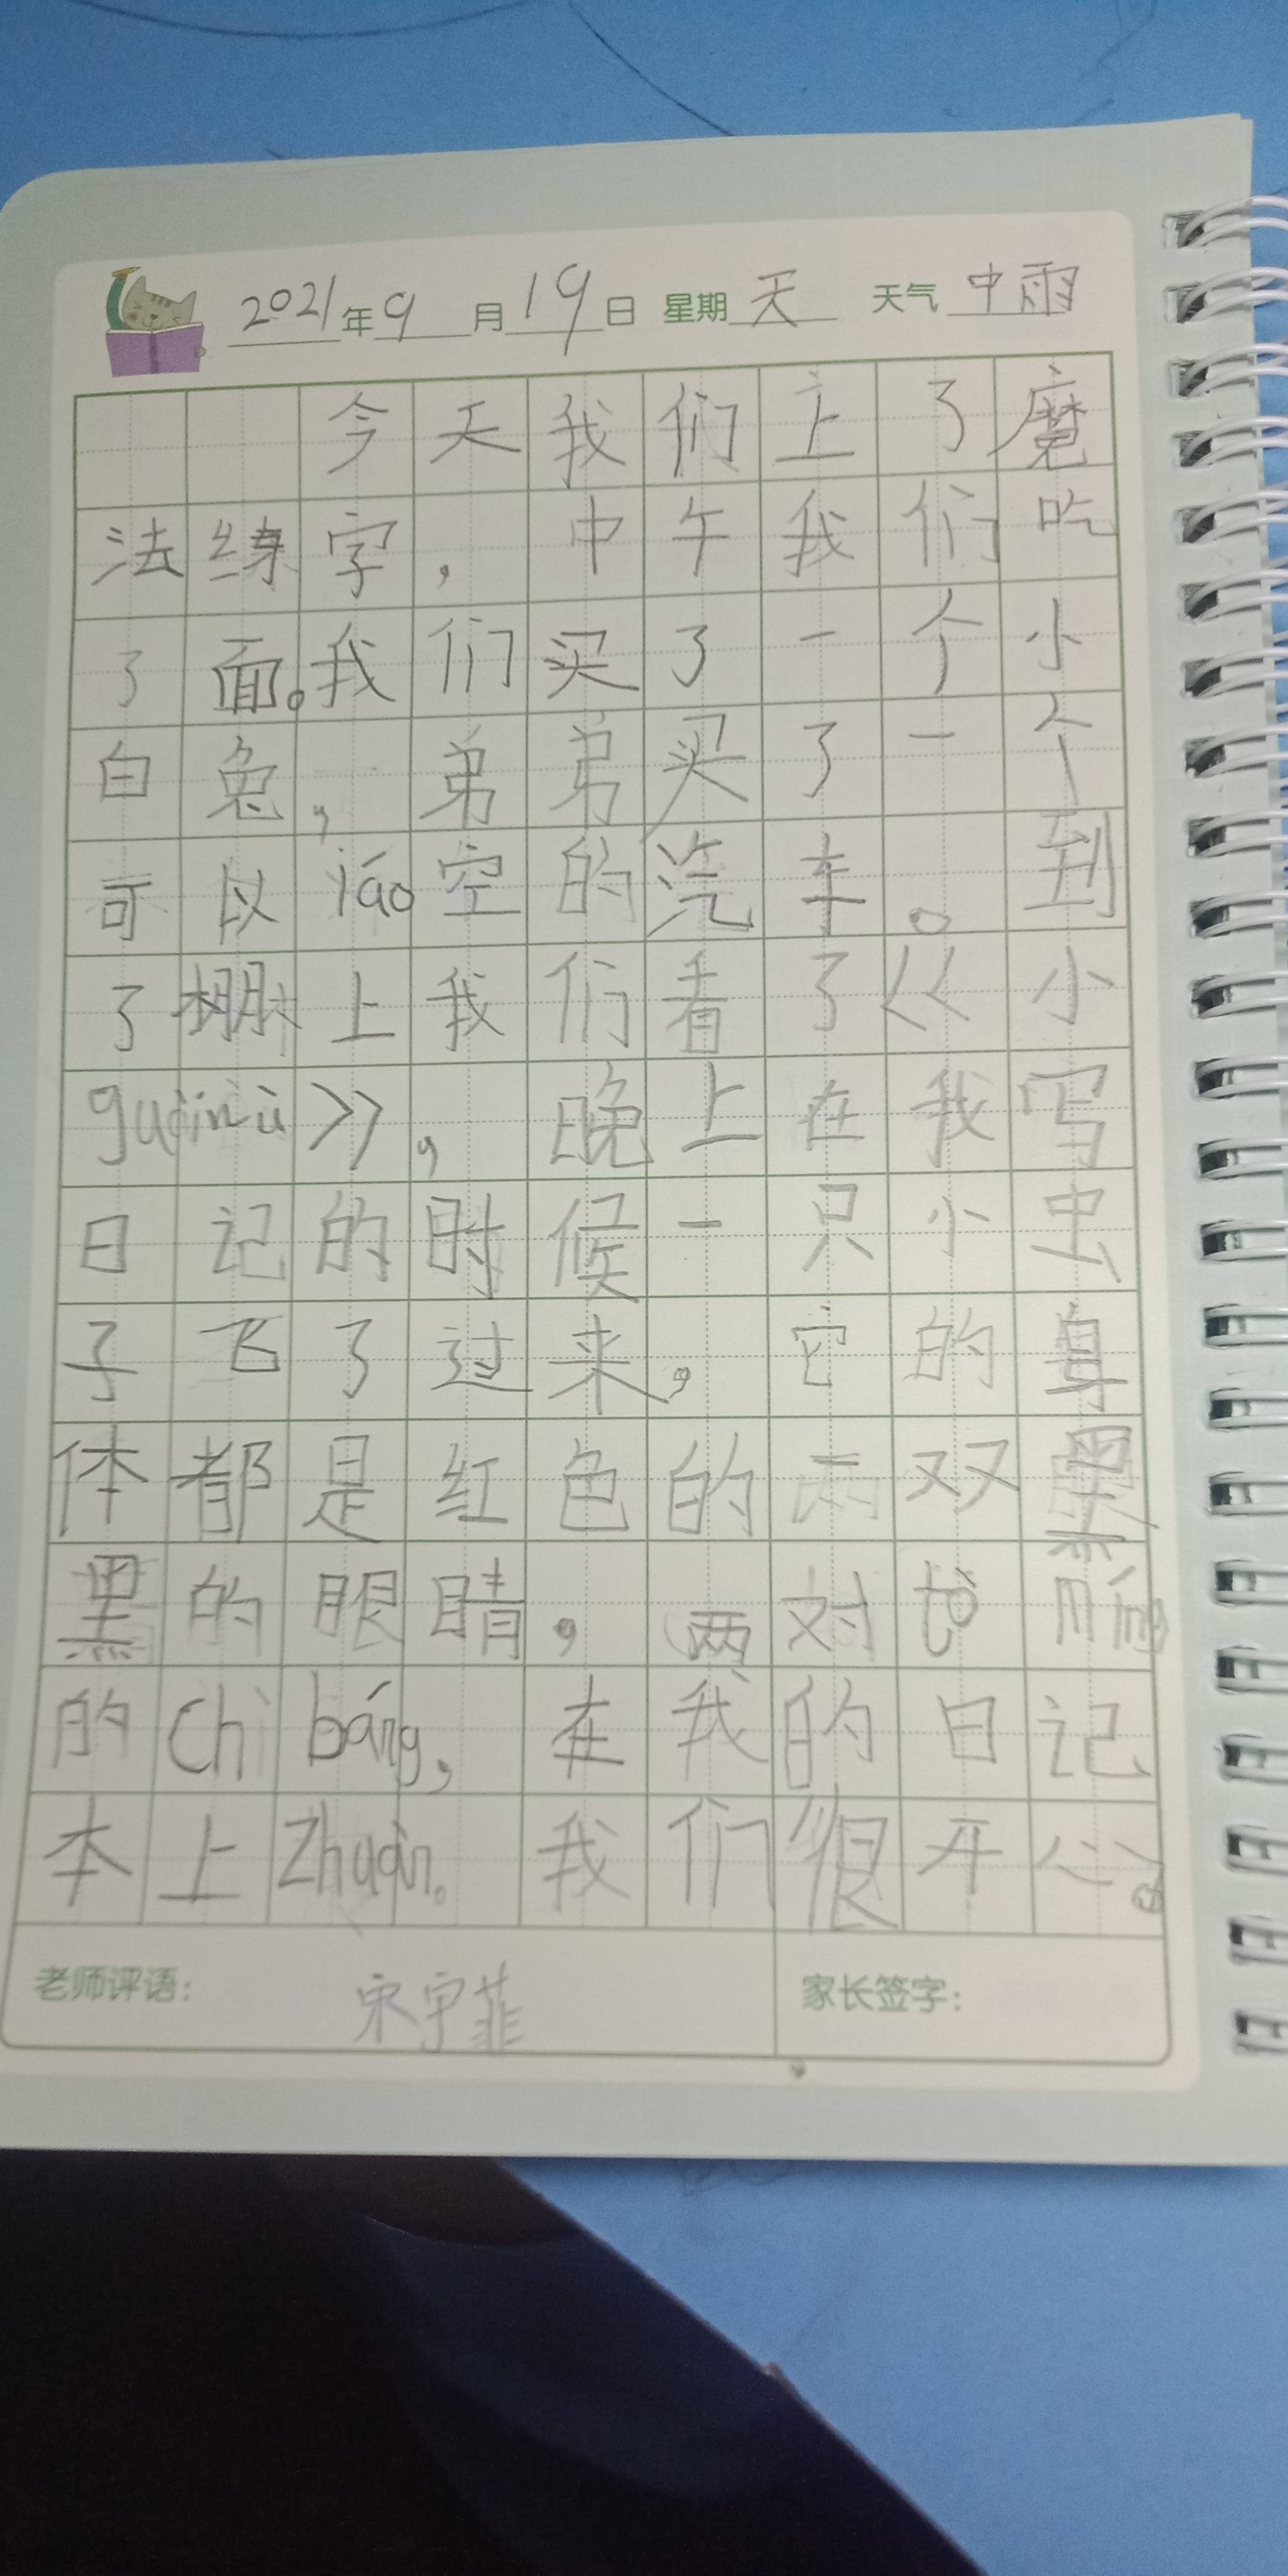 2021年9月19日 星期天 天气中雨
今天我们上了魔
法练字,中午我们吃
了面。我们买了一个小
白兔,弟弟买了一个
可以yáo空的汽车。到
了棚上我们看了《小
guǐinǜ》,晚上在我写
日记的时候一只小虫
子飞了过来,它的身
体都是红色的两双黑
黑的眼睛,两对tò míng
的Chì báng,在我的日记
本上Zhuàn。我们很开心。
老师评语: 宋宇菲 家长签字: